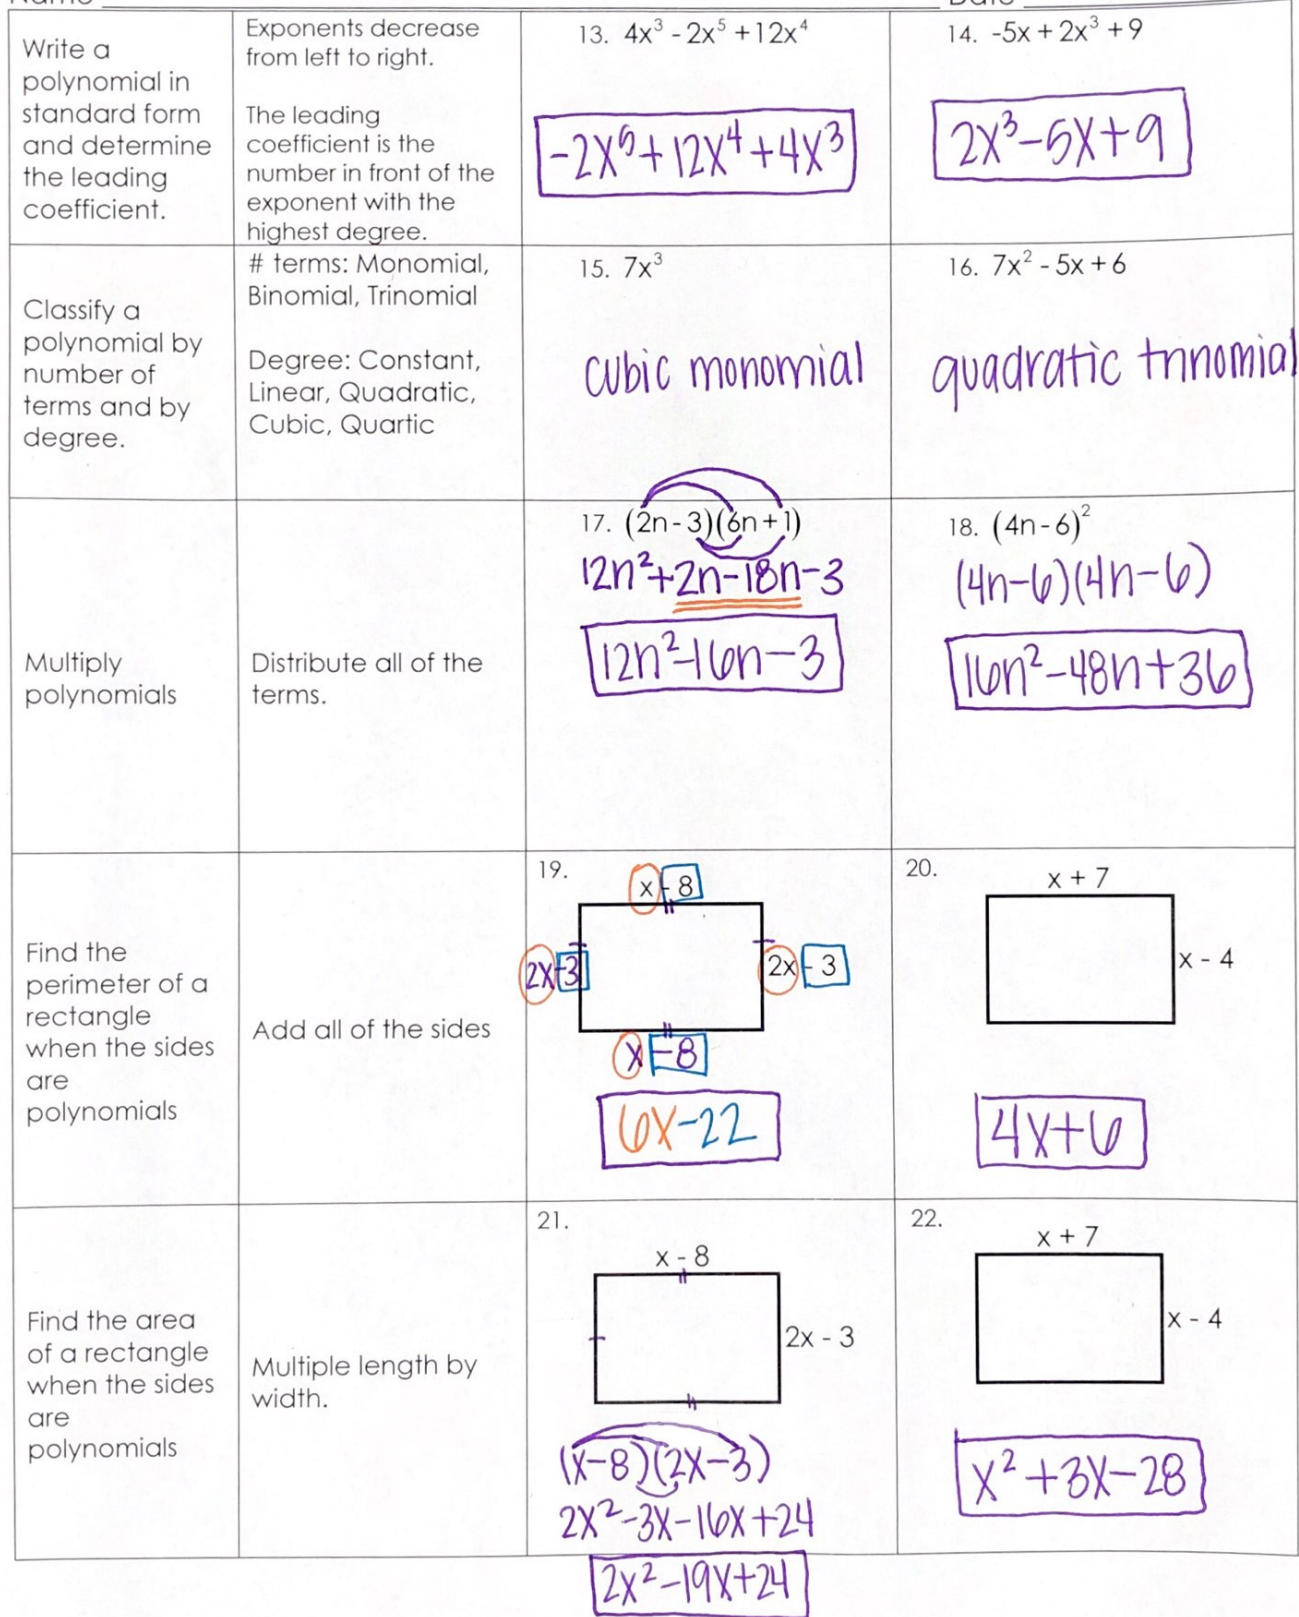 Write a
polynomial in
standard form
and determine
the leading
coefficient.
Exponents decrease
from left to right.
The leading
coefficient is the
number in front of the
exponent with the
highest degree.
13. 4x³ - 2x⁵ +12x⁴
-2x⁵+12x⁴+4x³
14. -5x + 2x³ + 9
2x³-5x+9
Classify a
polynomial by
number of
terms and by
degree.
# terms: Monomial,
Binomial, Trinomial
Degree: Constant,
Linear, Quadratic,
Cubic, Quartic
15. 7x³
cubic monomial
16. 7x² - 5x + 6
quadratic trinomial
Multiply
polynomials
Distribute all of the
terms.
17. (2n - 3)(6n + 1)
12n²+2n-18n-3
12n²-16n-3
18. (4n - 6)²
(4n-6)(4n-6)
16n²-48n+36
Find the
perimeter of a
rectangle
when the sides
are
polynomials
Add all of the sides
19.
x - 8
2x-3
2x - 3
x-8
6x-22
20.
x + 7
x - 4
4x+6
Find the area
of a rectangle
when the sides
are
polynomials
Multiple length by
width.
21.
x - 8
2x - 3
(x-8)(2x-3)
2x²-3x-16x+24
2x²-19x+24
22.
x + 7
x - 4
x²+3x-28